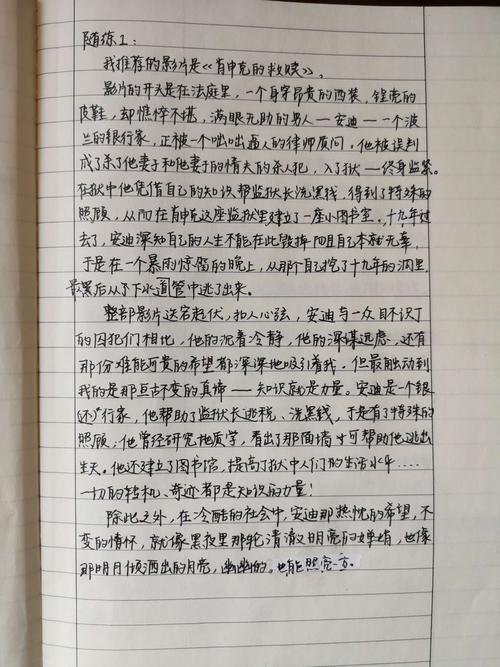 随练1:
我推荐的影片是《肖申克的救赎》。
影片的开头是在法庭里,一个身穿昂贵的西装、锃亮的
皮鞋,却憔悴不堪,满眼无助的男人—安迪—一个波
兰的银行家,正被一个咄咄逼人的律师质问,他被误判
成了杀了他妻子和他妻子的情夫的杀人犯,入了狱—终身监禁。
在狱中他凭借自己的知识帮监狱长洗黑钱,得到了特殊的
照顾,从而在肖申克这座监狱里建立了一座小图书室。十九年过
去了,安迪深知自己的人生不能在此毁掉,而且自己本就无辜,
于是在一个暴雨惊雷的晚上,从那个自己挖了十九年的洞里
最后从下水道管中逃了出来。
整部影片迭宕起伏,扣人心弦,安迪与一众目不识丁
的囚犯们相比,他的沉着冷静,他的深谋远虑,还有
那份难能可贵的希望都深深地吸引着我。但最触动到
我的是那亘古不变的真谛——知识就是力量。安迪是一个银
行家,他帮助了监狱长逃税、洗黑钱,于是有了特殊的
照顾;他曾经研究地质学,看出了那面墙可帮助他逃出
生天。他还建立了图书馆,提高了狱中人们的生活水平....
一切的转机、奇迹都是知识的力量!
除此之外,在冷酷的社会中,安迪那热忱的希望,不
变的情怀,就像黑夜里那轮清澈明亮的婵娟,也像
那明月倾洒出的月亮,幽幽的。也能照亮一方。